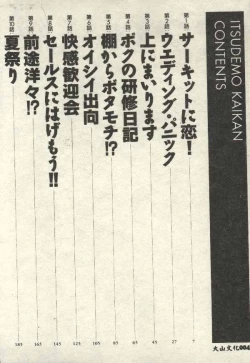 ITSUDEMO KAIKAN
CONTENTS
第1話 サーキットに恋! 7
第2話 ウエディング・パニック 27
第3話 上にまいります 45
第4話 ボクの研修日記 65
第5話 棚からボタモチ!? 85
第6話 オイシイ出向 105
第7話 快感歓迎会 125
第8話 セールスにはげもう!! 145
第9話 前途洋々!? 165
第10話 夏祭り 185
大山文化004